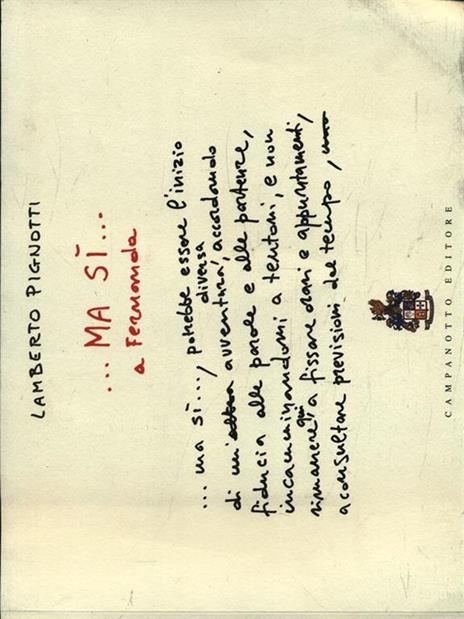 LAMBERTO PIGNOTTI
... MA SÌ...
a Fernanda
... ma sì..., potrebbe essere l'inizio
di un'altra diversa avventura, accordando
fiducia alle parole e alle partenze,
incamminandomi a tentoni, e non
rimanere qui a fissare orari e appuntamenti,
a consultare previsioni del tempo,
CAMPANOTTO EDITORE